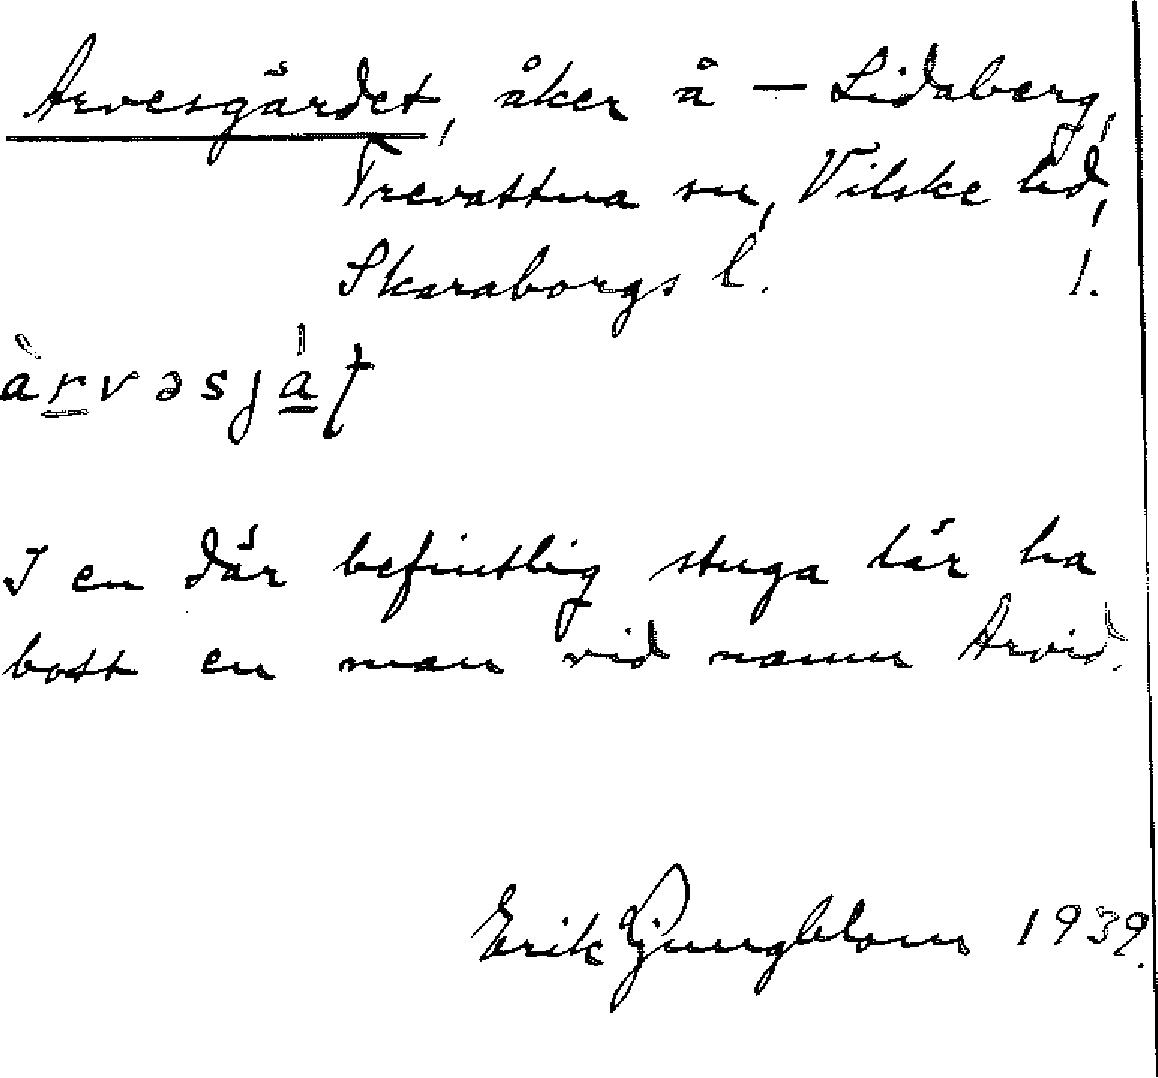 Arvesgärdet, åker å — Lidaberg,
Trevattna sn, Vilske hd,
Skaraborgs l. 1.
I en där befintlig stuga lär ha
bott en man vid namn Arvid.
Erik Ljungblom 1939.